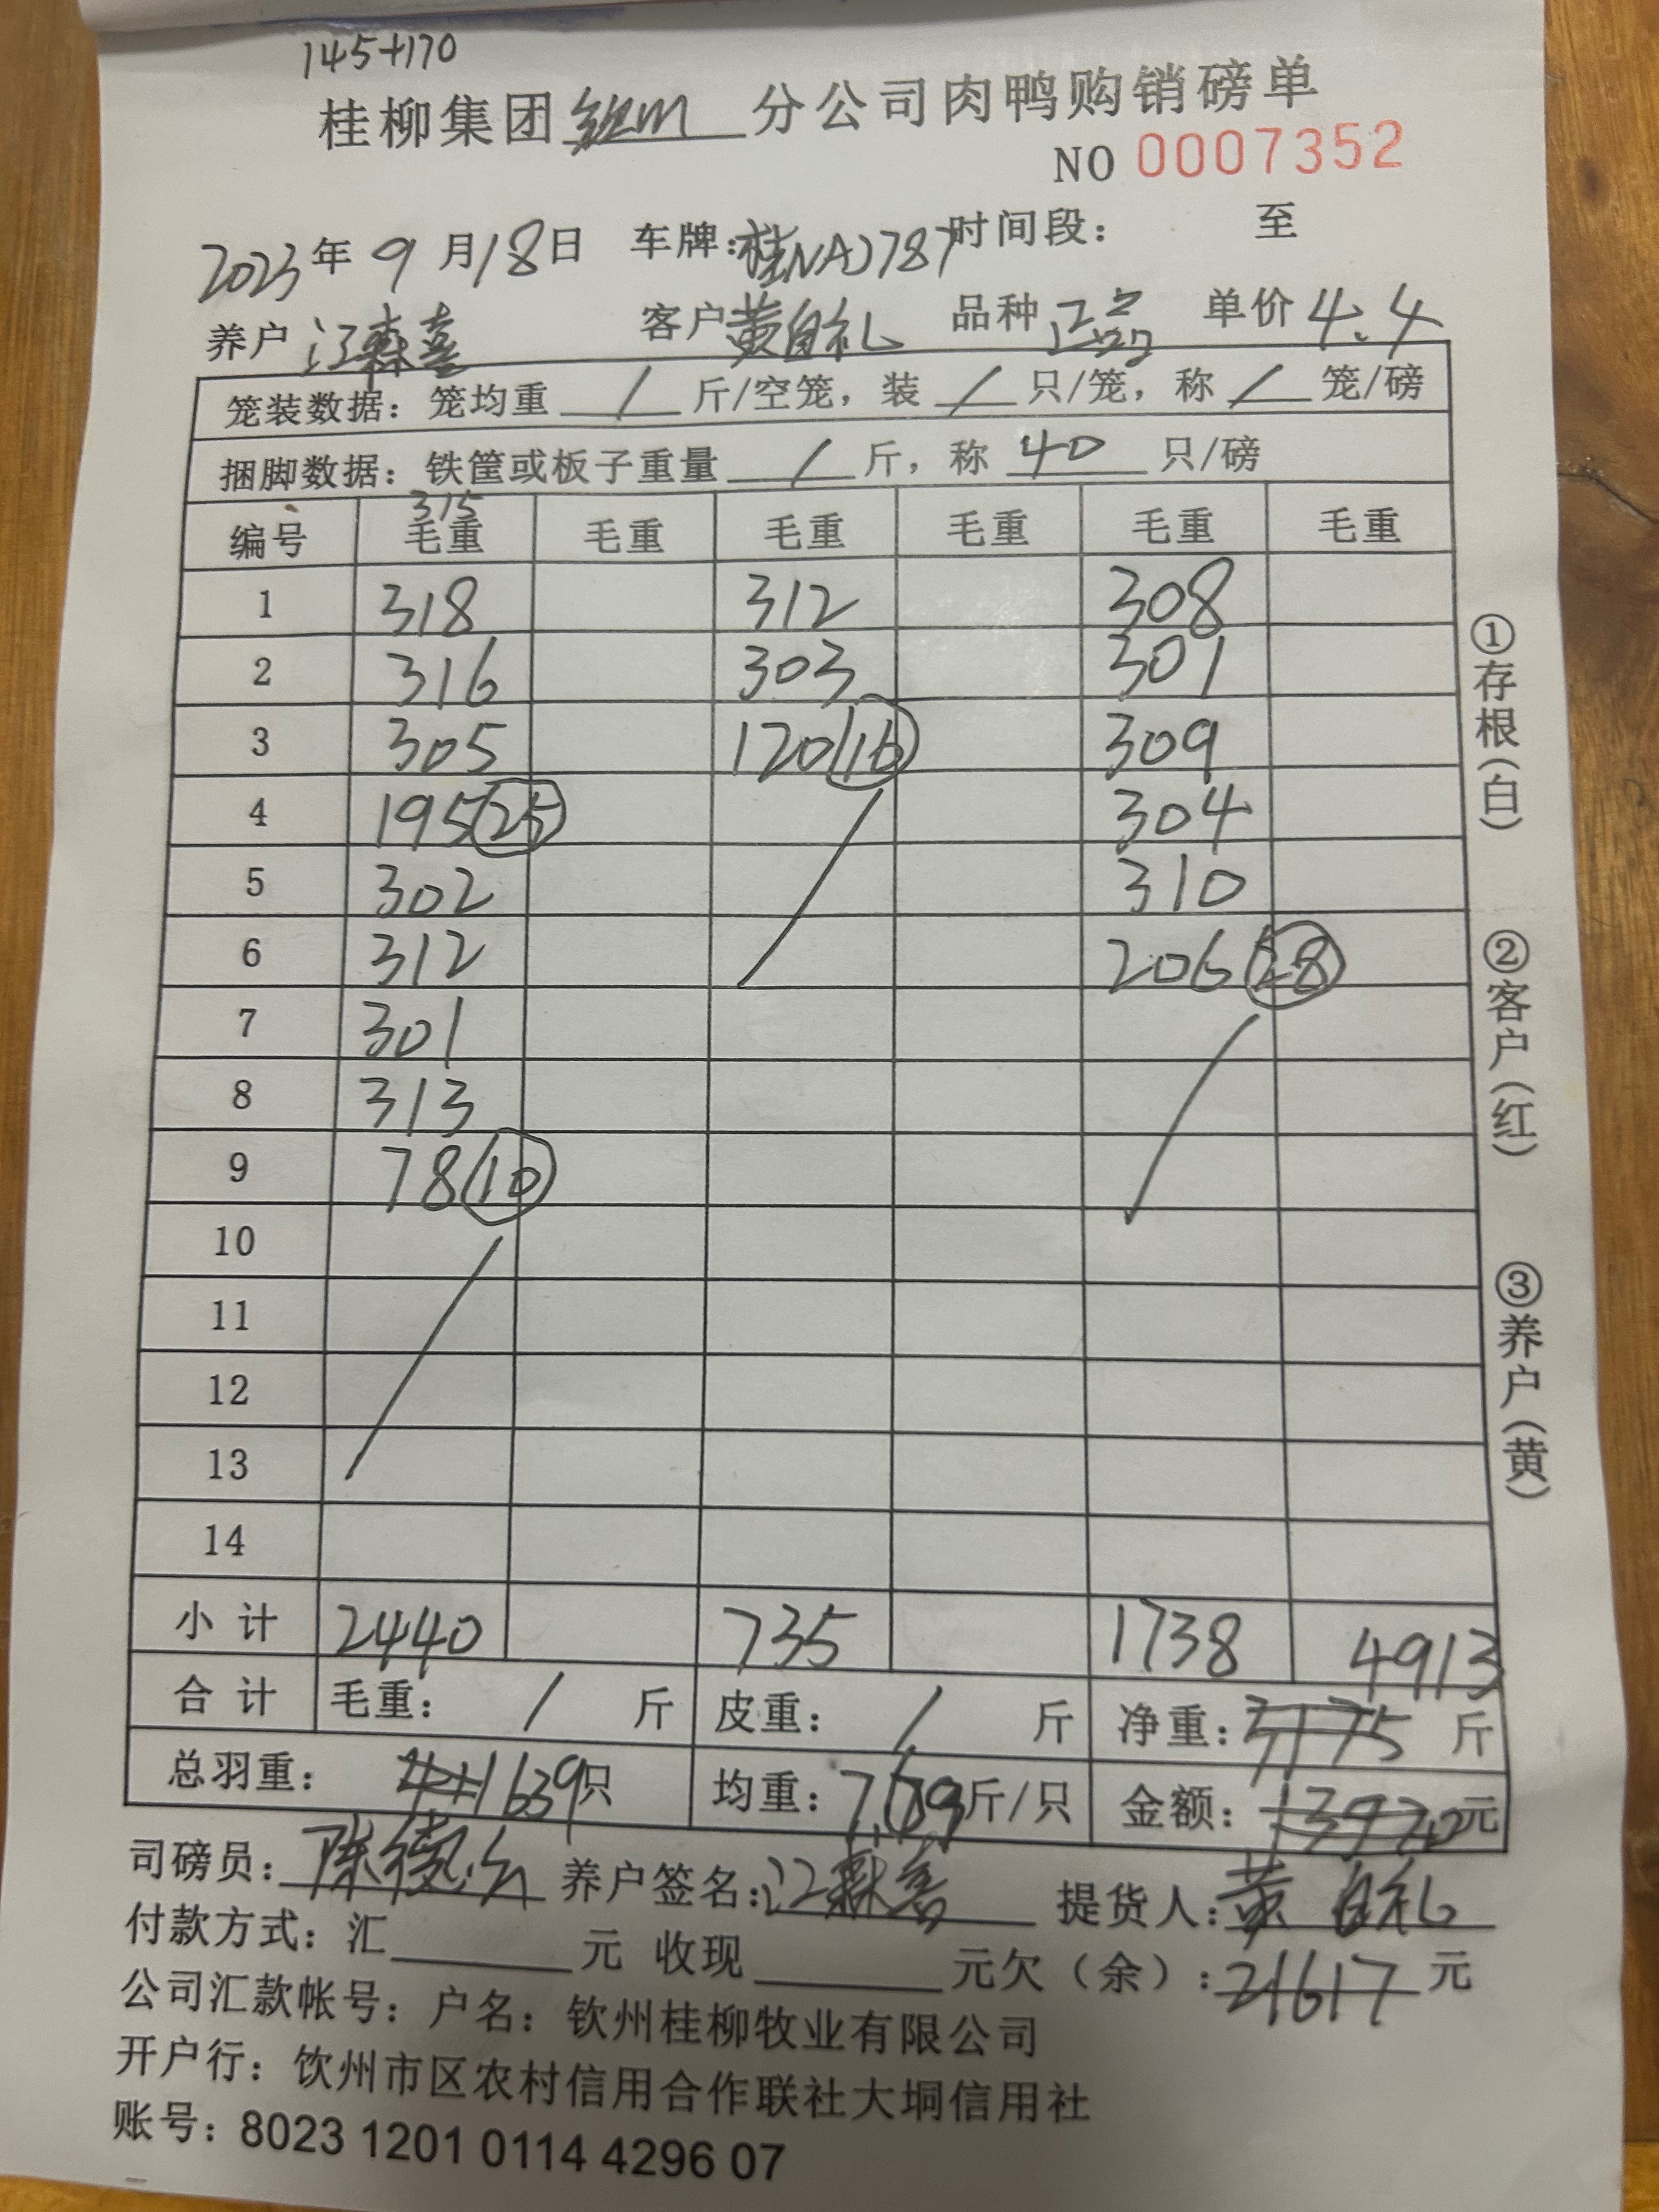 145+170
桂柳集团 分公司肉鸭购销磅单
NO 0007352
2023年 9 月 18 日 车牌:桂NAJ787 时间段: 至
养户 江森喜 客户 黄自礼 品种 正品 单价 4.4
笼装数据: 笼均重 / 斤/空笼, 装 / 只/笼, 称 / 笼/磅
捆脚数据: 铁筐或板子重量 / 斤, 称 40 只/磅
315
编号 毛重 毛重 毛重 毛重 毛重 毛重
1 318 312 308
2 316 303 301
3 305 120(16) 309
4 195(25) 304
5 302 310
6 312 206(28)
7 301
8 313
9 78(10)
10
11
12
13
14
小 计 2440 735 1738 4913
合 计 毛重: / 斤 皮重: / 斤 净重: 3175 斤
总羽重: 639只 均重: 7.69斤/只 金额: 13970元
司磅员: 养户签名: 江森喜 提货人: 黄自礼
付款方式: 汇 元 收现 元欠(余): 21617 元
公司汇款帐号: 户名: 钦州桂柳牧业有限公司
开户行: 钦州市区农村信用合作联社大垌信用社
账号: 8023 1201 0114 4296 07
①存根(白)
②客户(红)
③养户(黄)